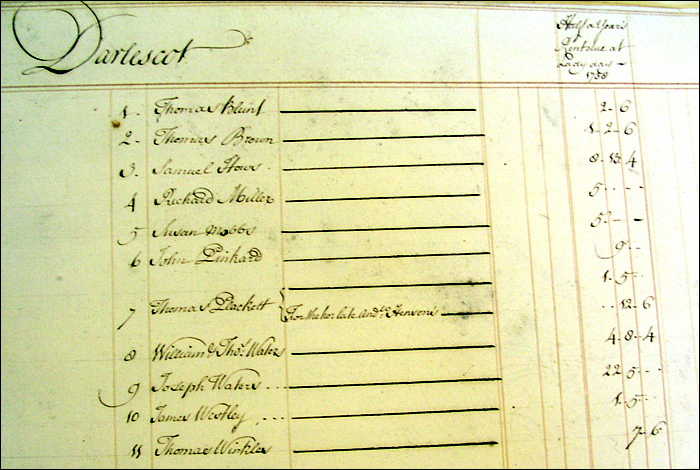 Darlescot
Half a Year's
Rent due at
Lady day -
1758
1 - Thomas Blunt 2 - 6
2 - Thomas Brown 1 - 2 - 6
3 - Samuel Hows 8 - 13 - 4
4 Richard Miller 5 - - -
5 Susan Mobbs 5 - -
6 John Pinkard 9 -
1 - 5 -
7 Thomas Plackett late Henson's 12 - 6
8 William & Thos. Waters 4 - 8 - 4
9 Joseph Waters 22 5 -
10 James Westley 1 - 5 -
11 Thomas Winkles 7 - 6